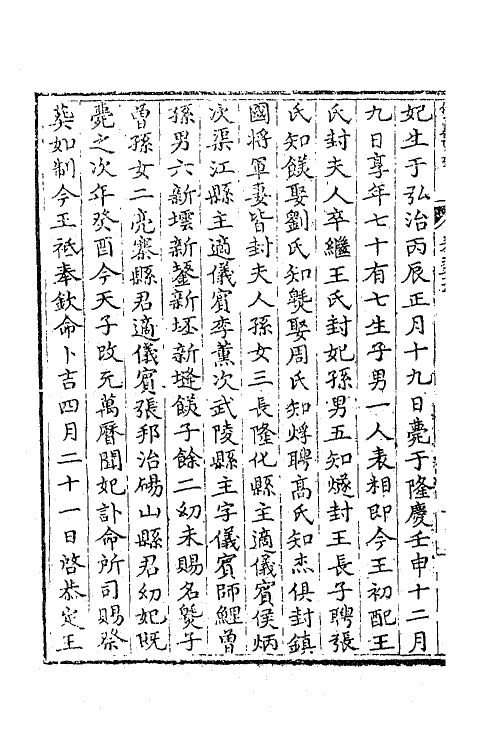 妃生于弘治丙辰正月十九日薨于隆慶壬申十二月
九日享年七十有七生子男一人表相即今王初配王
氏封夫人卒繼王氏封妃孫男五知㸂封王長子聘張
氏知䥝娶劉氏知㷫娶周氏知烰聘高氏知杰俱封鎮
國將軍妻皆封夫人孫女三長隆化縣主適儀賓侯炳
次渠江縣主適儀賓李薰次武陵縣主字儀賓師鯉曾
孫男六新㙻新鋆新坯新塳䥝子餘二幼未賜名㷫子
曾孫女二亮寨縣君適儀賓張邦治碭山縣君幼妃既
薨之次年癸酉今天子改元萬曆聞妃訃命所司賜祭
葬如制今王祗奉欽命卜吉四月二十一日啓恭定王